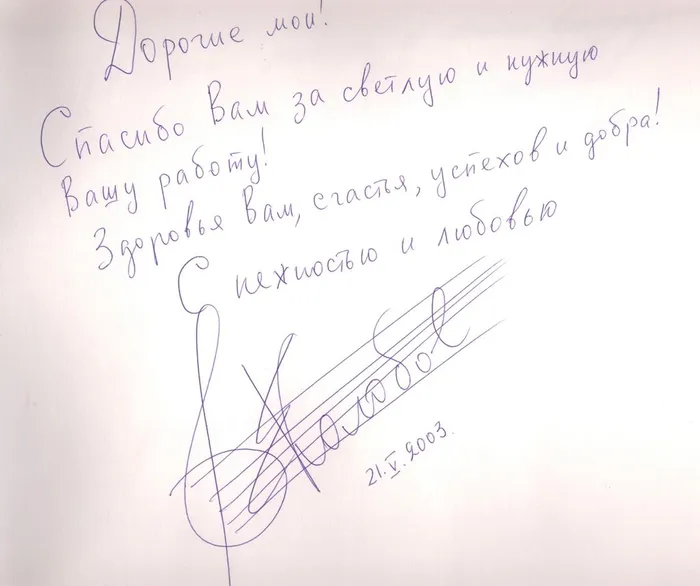 Дорогие мои!
Спасибо Вам за светлую и нужную
Вашу работу!
Здоровья Вам, счастья, успехов и добра!
С нежностью и любовью
21.V.2003.